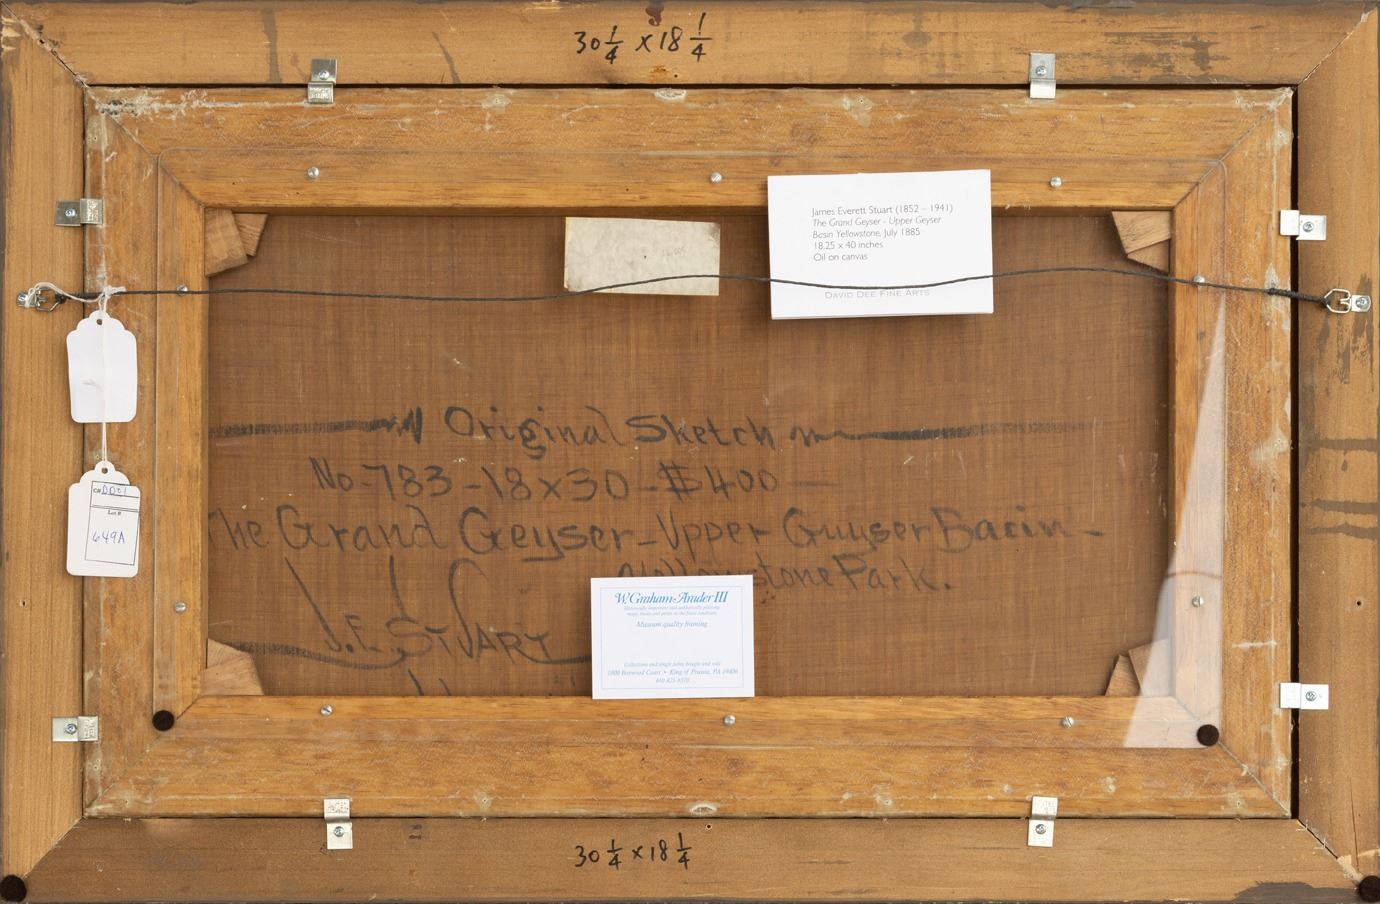 30 1/4 x 18 1/4
James Everett Stuart (1852 – 1941)
The Grand Geyser - Upper Geyser
Basin Yellowstone, July 1885
18.25 x 40 inches
Oil on canvas
DAVID DEE FINE ARTS
Original Sketch
No-783-18x30-$400
The Grand Geyser-Upper Guyser Bacin-
Yellowstone Park.
J.E. STUART
Lot #
649A
W. Graham Arader III
Museum quality framing
Collections and single items bought and sold
1000 Boxwood Court • King of Prussia, PA 19406
30 1/4 x 18 1/4